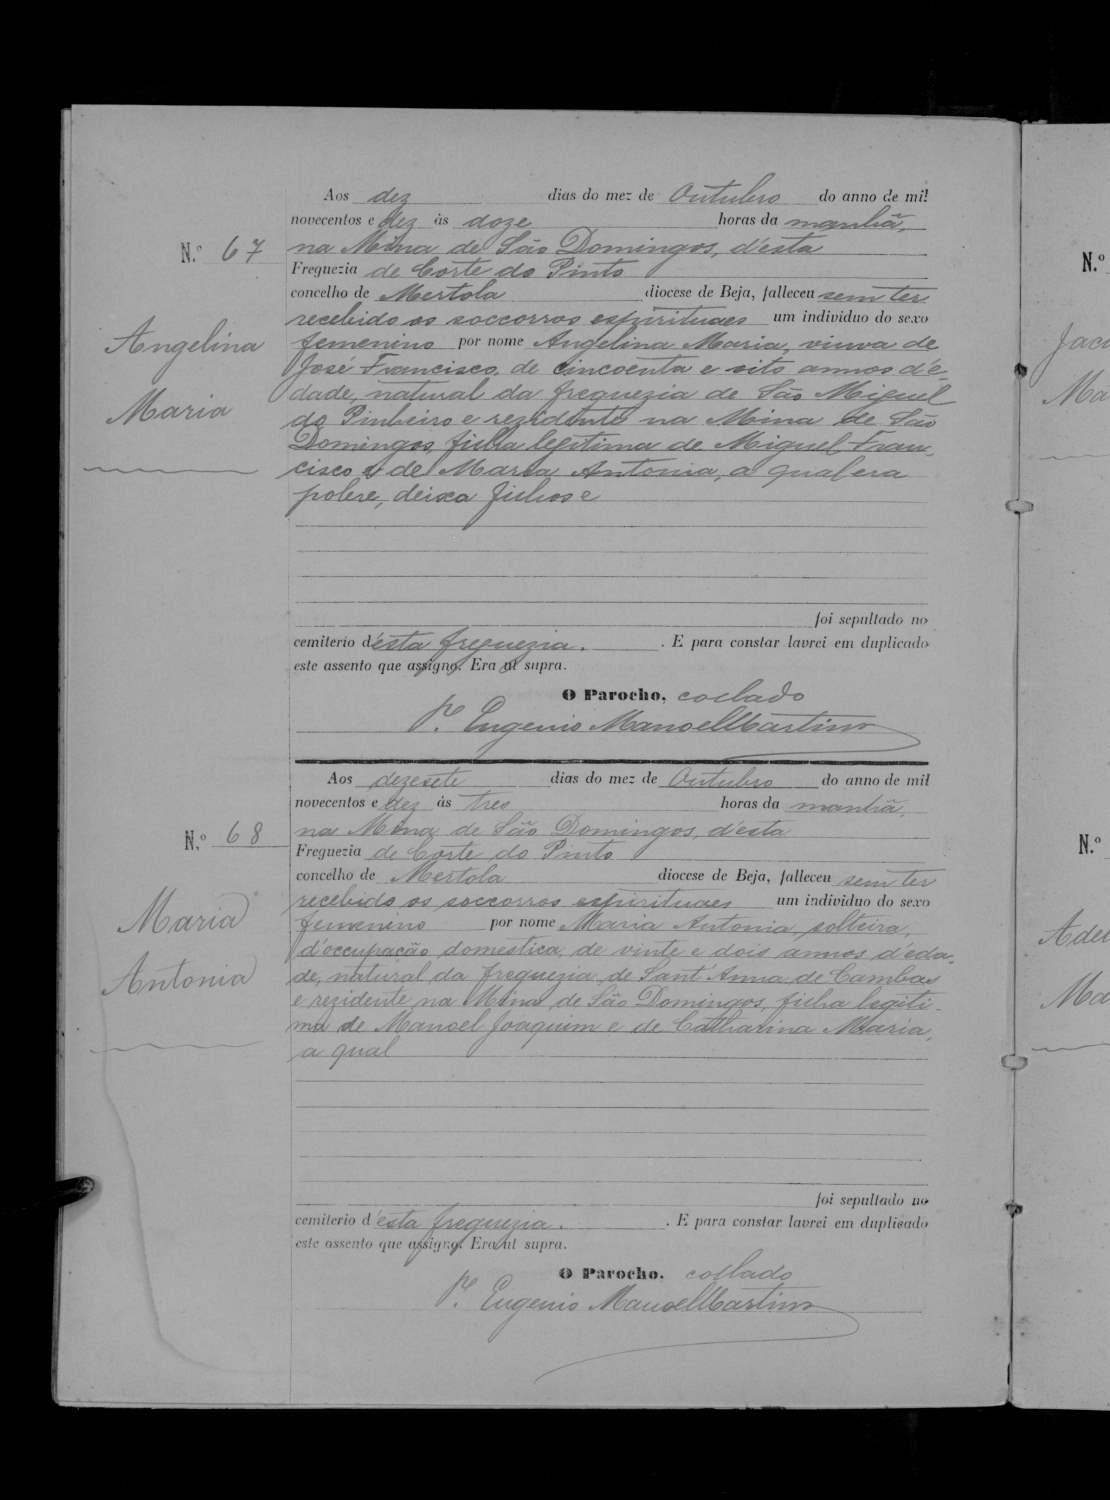 Aos dez dias do mez de Outubro do anno de mil
novecentos e dez às doze horas da manhã,
N.º 67
na Mina de São Domingos, d'esta
Freguezia de Corte do Pinto
concelho de Mertola diocese de Beja, falleceu sem ter
recebido os soccorros espirituaes um individuo do sexo
Angelina
Maria
femenino por nome Angelina Maria, viuva de
José Francisco, de cincoenta e oito annos d'e-
dade, natural da freguezia de São Miguel
do Pinheiro e rezidente na Mina de São
Domingos, filha legitima de Miguel Fran-
cisco e de Maria Antonia, a qual era
pobre, deixa filhos e
foi sepultado no
cemiterio d'esta freguezia. . E para constar lavrei em duplicado
este assento que assigno. Era ut supra.
O Parocho, collado
P.e Eugenio Manoel Martins
Aos dezesete dias do mez de Outubro do anno de mil
novecentos e dez às tres horas da manhã,
N.º 68
na Mina de São Domingos, d'esta
Freguezia de Corte do Pinto
concelho de Mertola diocese de Beja, falleceu sem ter
recebido os soccorros espirituaes um individuo do sexo
Maria
Antonia
femenino por nome Maria Antonia, solteira,
d'occupação domestica, de vinte e dois annos d'eda-
de, natural da freguezia de Sant'Anna de Cambas
e rezidente na Mina de São Domingos, filha legiti-
ma de Manoel Joaquim e de Catharina Maria,
a qual
foi sepultado no
cemiterio d'esta freguezia. . E para constar lavrei em duplicado
este assento que assigno. Era ut supra.
O Parocho, collado
P.e Eugenio Manoel Martins
N.º
Jaci
Ma
N.º
Adel
Ma